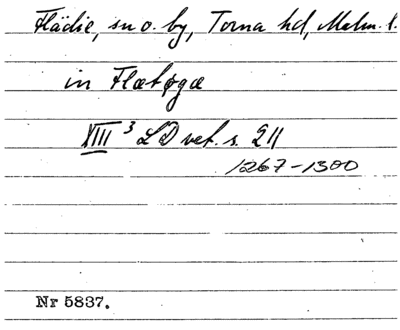 Flädie, sn o. by, Torna hd, Malm. l.
in Flætøgæ
XIII 3 LD vet. s. 211
1267-1300
Nr 5837.